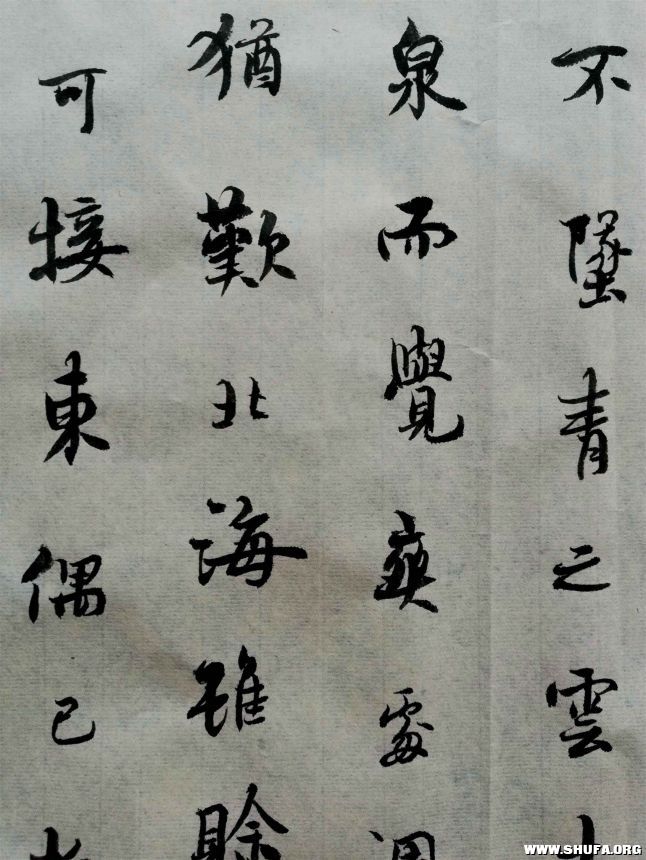 不墜青之雲
泉而覺爽處
猶歎北海雖賒
可接東偶已
WWW.SHUFA.ORG